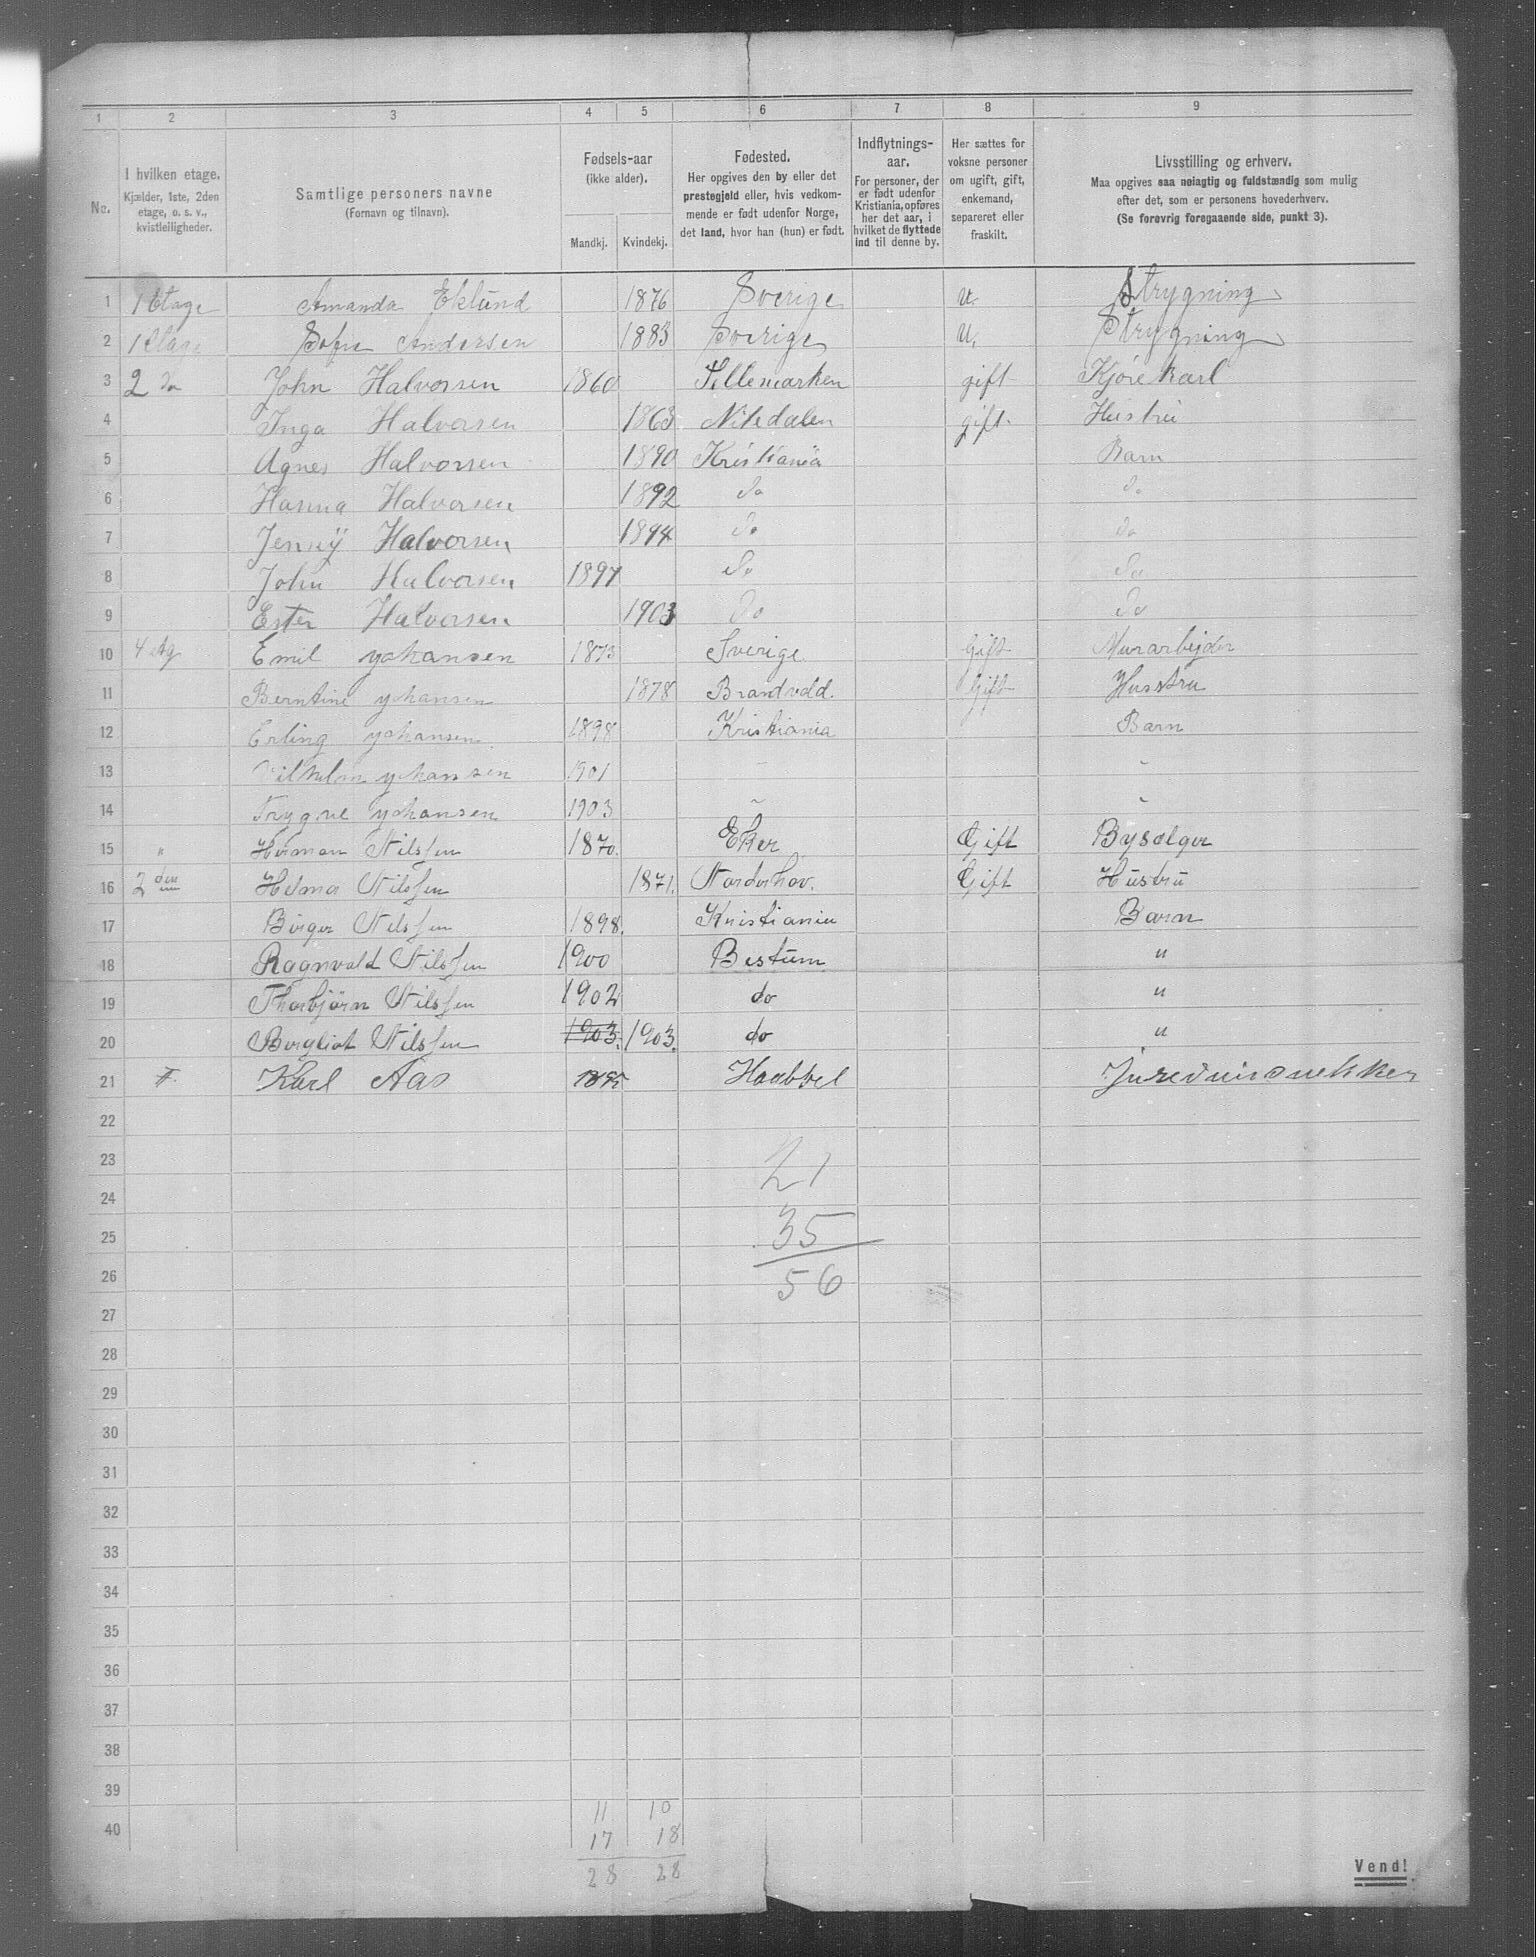 1 2 3 4 5 6 7 8 9
No.
I hvilken etage.
Kjælder, 1ste, 2den
etage, o. s. v.,
kvistleiligheder.
Samtlige personers navne
(Fornavn og tilnavn).
Fødsels-aar
(ikke alder).
Mandkj. Kvindekj.
Fødested.
Her opgives den by eller det
prestegjeld eller, hvis vedkom-
mende er født udenfor Norge,
det land, hvor han (hun) er født.
Indflytnings-
aar.
For personer, der
er født udenfor
Kristiania, opføres
her det aar, i
hvilket de flyttede
ind til denne by.
Her sættes for
voksne personer
om ugift, gift,
enkemand,
separeret eller
fraskilt.
Livsstilling og erhverv.
Maa opgives saa nøiagtig og fuldstændig som mulig
efter det, som er personens hovederhverv.
(Se forøvrig foregaaende side, punkt 3).
1 1 Etage Amanda Eklund 1876 Sverige u. Strygning
2 1 Etage Sofie Andersen 1883 Sverige u. Strygning
3 2 do John Halvorsen 1860 Tellemarken gift Kjørekarl
4 Inga Halvorsen 1863 Nitedalen gift. Hustru
5 Agnes Halvorsen 1890 Kristiania Barn
6 Hanna Halvorsen 1892 do do
7 Jenny Halvorsen 1894 do do
8 John Halvorsen 1897 do do
9 Ester Halvorsen 1903 do do
10 4 etg Emil Johansen 1873 Sverige Gift Murarbejder
11 Berntine Johansen 1878 Brandvold. Gift Husstru
12 Erling Johansen 1898 Kristiania Barn
13 Vilhelm Johansen 1901 - -
14 Trygve Johansen 1903 - -
15 " Herman Nilssen 1870. Eker Gift Bysælger
16 2 den Helma Nilssen 1871. Norderhov. Gift Hustru
17 Birger Nilssen 1898. Kristiania Barn
18 Ragnvald Nilssen 1900 Bestum "
19 Thorbjørn Nilssen 1902 do "
20 Borgliot Nilssen 1903. 1903. do "
21 Karl Aas Haabbel
22
23 21
24
25 35
26 56
27
28
29
30
31
32
33
34
35
36
37
38
39
11 10
40 17 18
28 28
Vend!